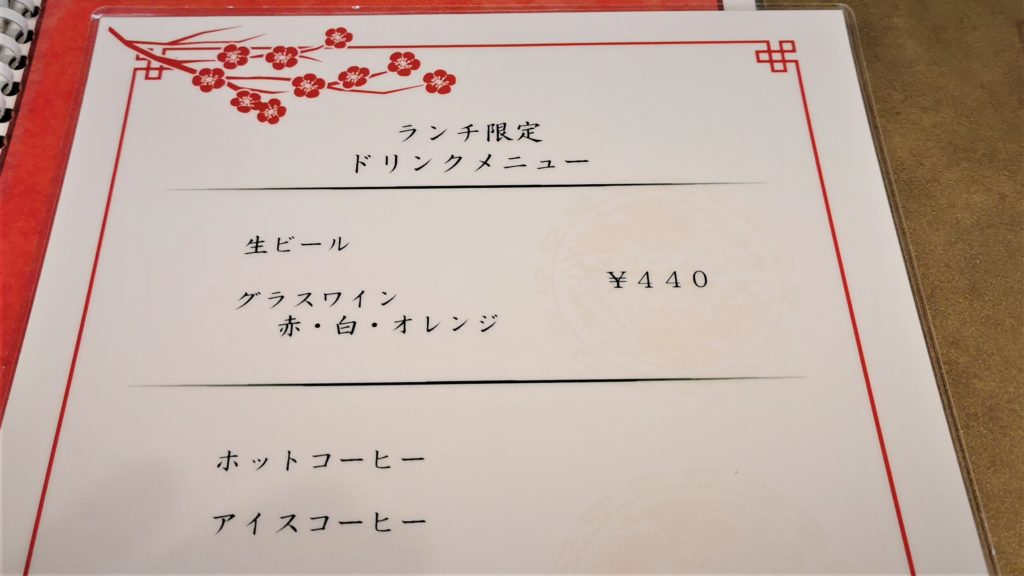 ランチ限定
ドリンクメニュー
生ビール
¥440
グラスワイン
赤・白・オレンジ
ホットコーヒー
アイスコーヒー